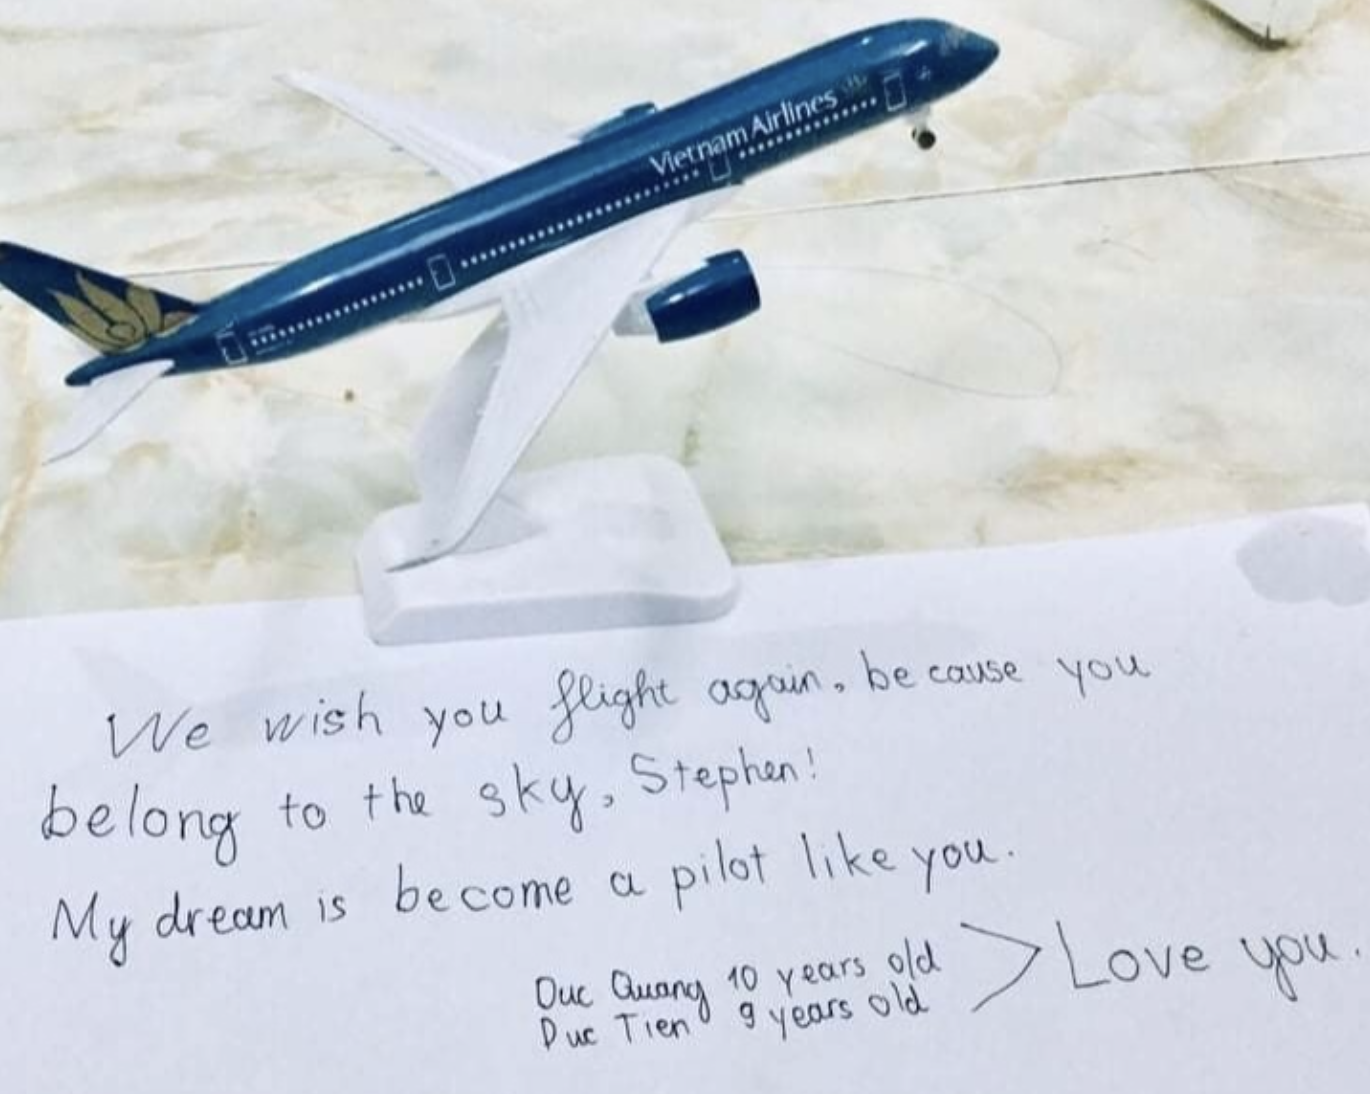 Vietnam Airlines
We wish you flight again, because you
belong to the sky, Stephen!
My dream is become a pilot like you.
Duc Quang 10 years old
Duc Tien 9 years old
> Love you.